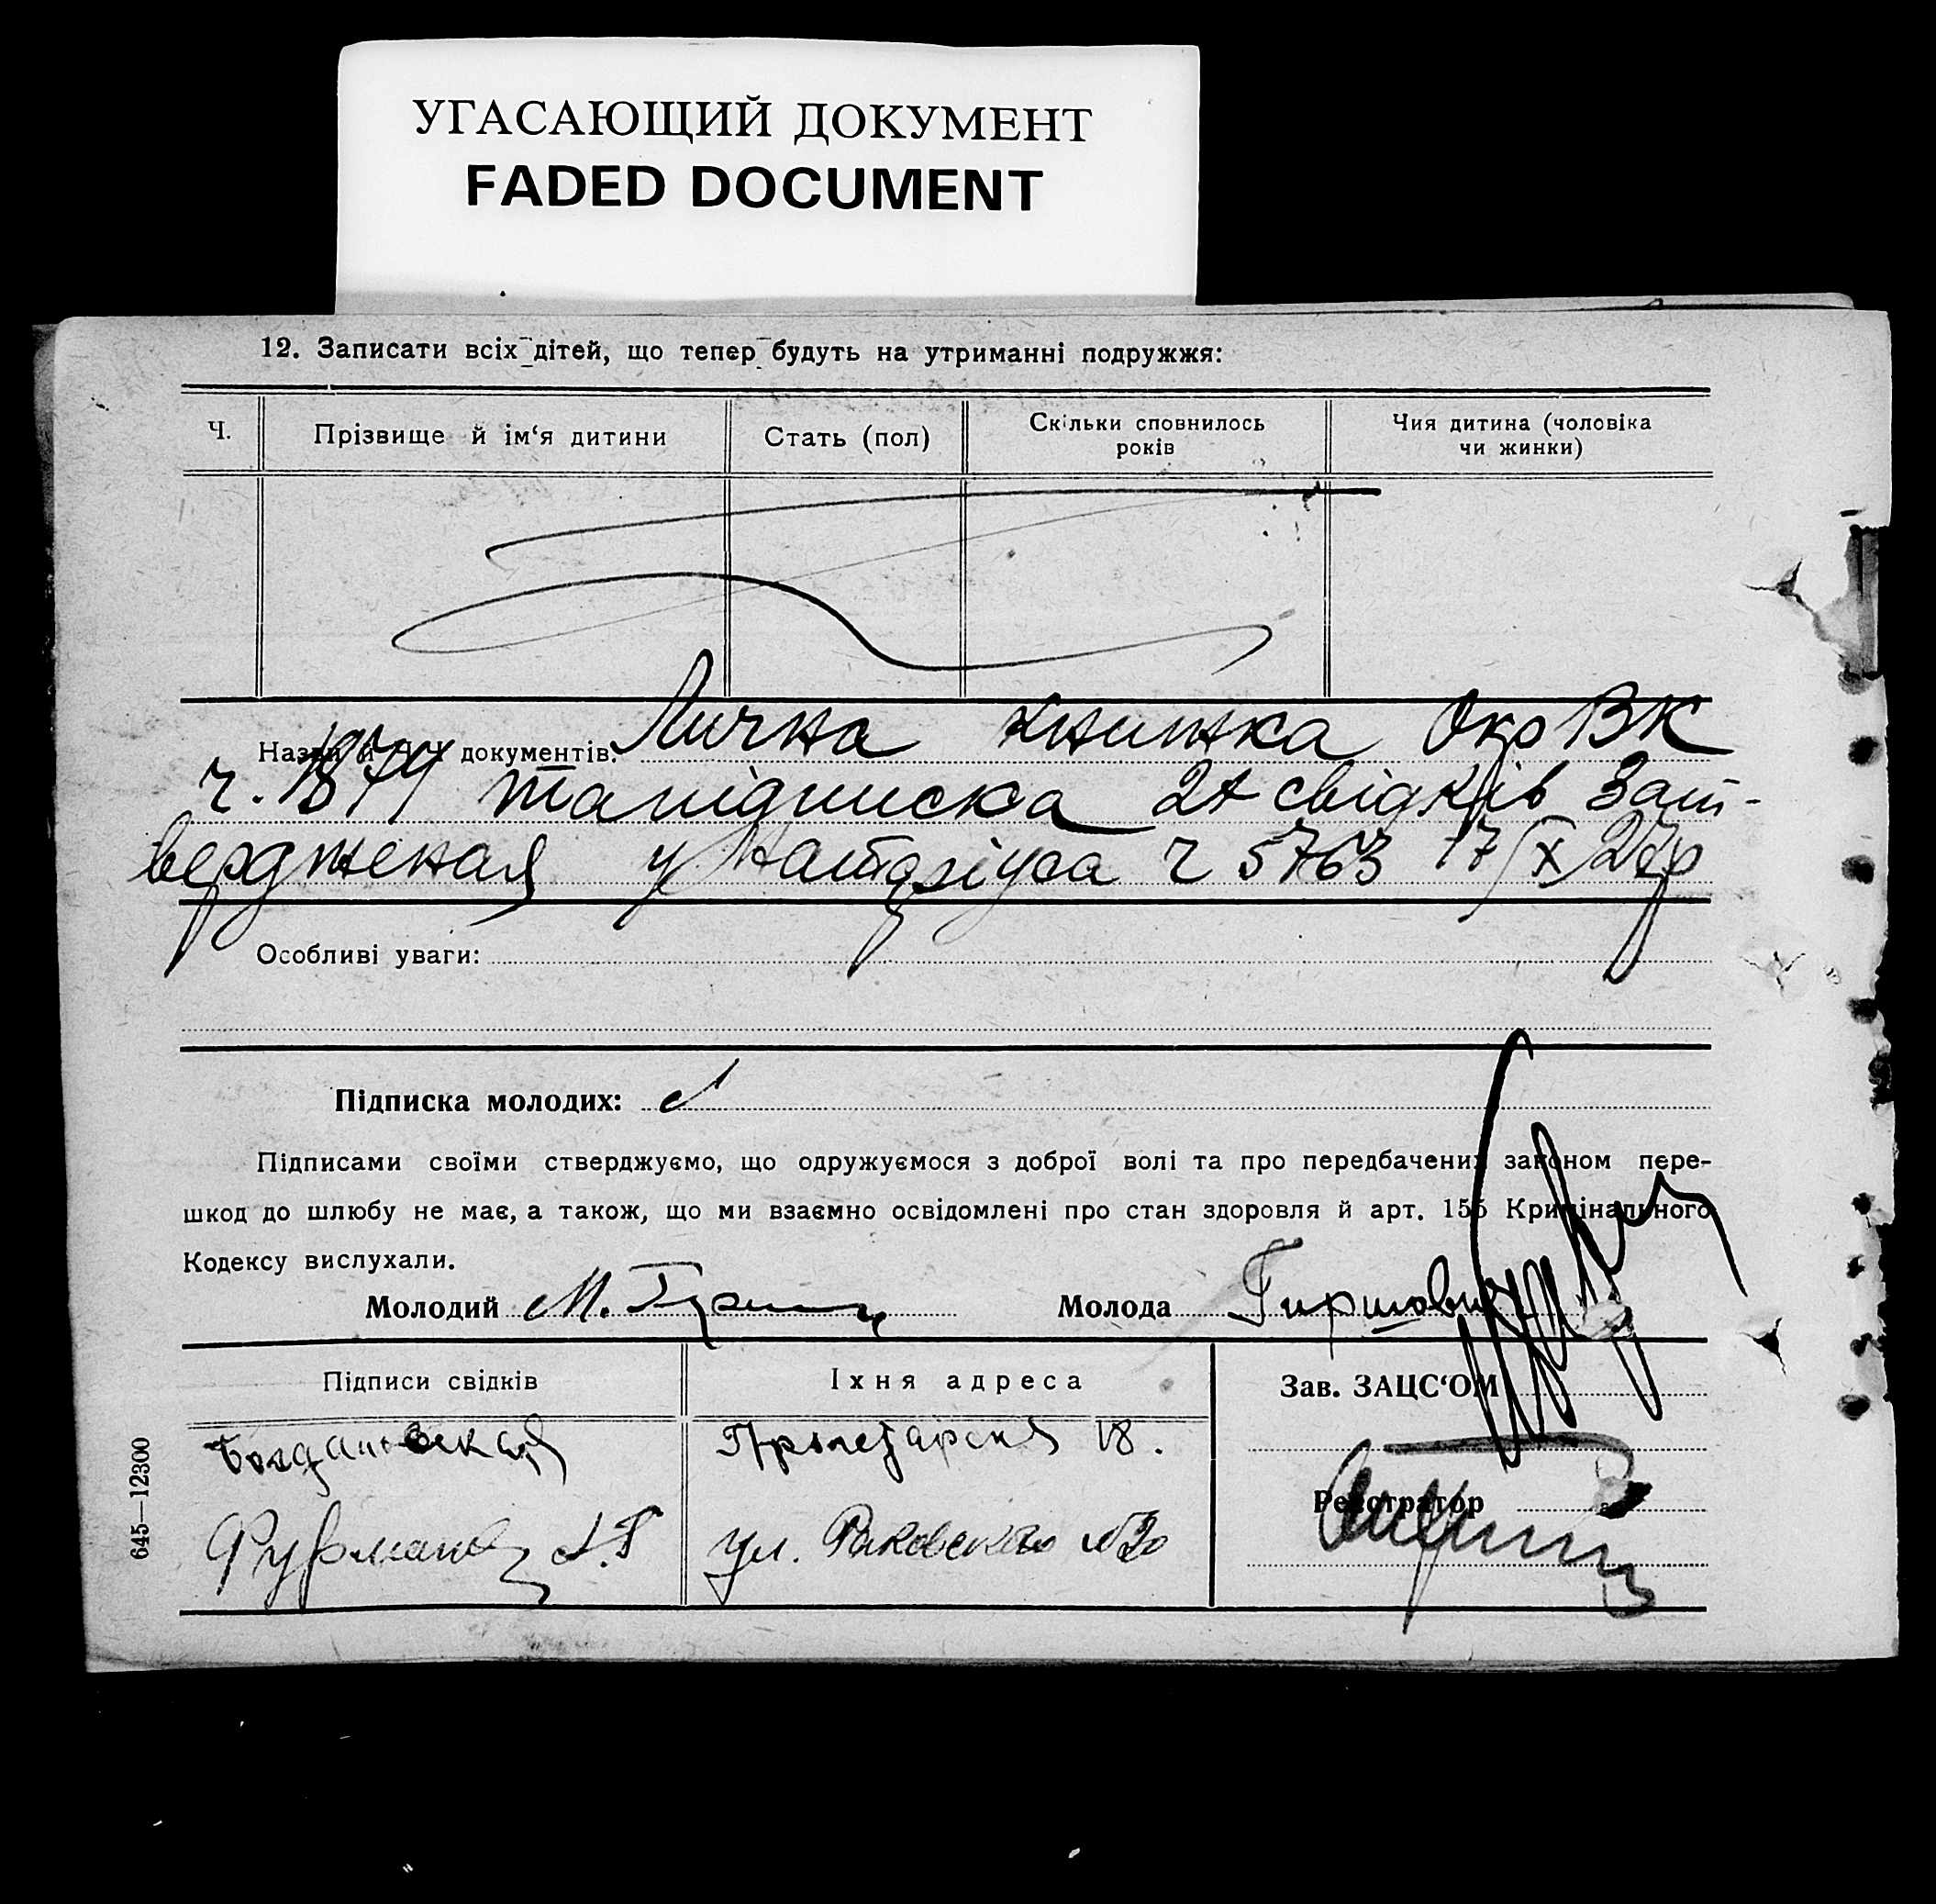 УГАСАЮЩИЙ ДОКУМЕНТ
FADED DOCUMENT
12. Записати всіх дітей, що тепер будуть на утриманні подружжя:
Ч.
Прізвище й ім‘я дитини
Стать (пол)
Скільки сповнилось
років
Чия дитина (чоловіка
чи жинки)
документів: Лична книжка Окр ВК
ч. 1879 та підписка 2х свідків Зат-
вердженая у натаріуса ч 5763 17/X 27р
Особливі уваги:
Підписка молодих:
Підписами своїми стверджуємо, що одружуємося з доброї волі та про передбачених законом пере-
шкод до шлюбу не має, а також, що ми взаємно освідомлені про стан здоровля й арт. 155 Кримінального
Кодексу вислухали.
Молодий М.
Молода Гиршович
Підписи свідків
Їхня адреса
Зав. ЗАЦС‘ОМ
Богдановская
Пролетарская 18.
Реєстратор
Фурман
ул. Раковского №30
645—12300